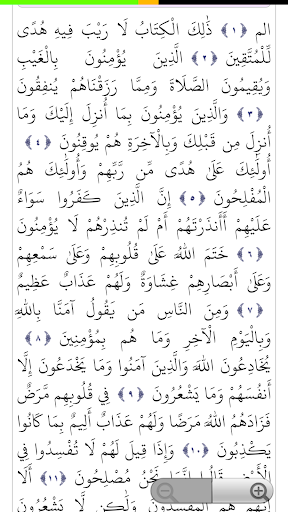 الم ﴿١﴾ ذَٰلِكَ الْكِتَابُ لَا رَيْبَ فِيهِ هُدًى
لِّلْمُتَّقِينَ ﴿٢﴾ الَّذِينَ يُؤْمِنُونَ بِالْغَيْبِ
وَيُقِيمُونَ الصَّلَاةَ وَمِمَّا رَزَقْنَاهُمْ يُنفِقُونَ
﴿٣﴾ وَالَّذِينَ يُؤْمِنُونَ بِمَا أُنزِلَ إِلَيْكَ وَمَا
أُنزِلَ مِن قَبْلِكَ وَبِالْآخِرَةِ هُمْ يُوقِنُونَ ﴿٤﴾
أُولَٰئِكَ عَلَىٰ هُدًى مِّن رَّبِّهِمْ وَأُولَٰئِكَ هُمُ
الْمُفْلِحُونَ ﴿٥﴾ إِنَّ الَّذِينَ كَفَرُوا سَوَاءٌ
عَلَيْهِمْ أَأَنذَرْتَهُمْ أَمْ لَمْ تُنذِرْهُمْ لَا يُؤْمِنُونَ
﴿٦﴾ خَتَمَ اللَّهُ عَلَىٰ قُلُوبِهِمْ وَعَلَىٰ سَمْعِهِمْ
وَعَلَىٰ أَبْصَارِهِمْ غِشَاوَةٌ وَلَهُمْ عَذَابٌ عَظِيمٌ
﴿٧﴾ وَمِنَ النَّاسِ مَن يَقُولُ آمَنَّا بِاللَّهِ
وَبِالْيَوْمِ الْآخِرِ وَمَا هُم بِمُؤْمِنِينَ ﴿٨﴾
يُخَادِعُونَ اللَّهَ وَالَّذِينَ آمَنُوا وَمَا يَخْدَعُونَ إِلَّا
أَنفُسَهُمْ وَمَا يَشْعُرُونَ ﴿٩﴾ فِي قُلُوبِهِم مَّرَضٌ
فَزَادَهُمُ اللَّهُ مَرَضًا وَلَهُمْ عَذَابٌ أَلِيمٌ بِمَا كَانُوا
يَكْذِبُونَ ﴿١٠﴾ وَإِذَا قِيلَ لَهُمْ لَا تُفْسِدُوا فِي
الْأَرْضِ قَالُوا إِنَّمَا نَحْنُ مُصْلِحُونَ ﴿١١﴾ أَلَا
إِنَّهُمْ هُمُ الْمُفْسِدُونَ وَلَٰكِن لَّا يَشْعُرُونَ